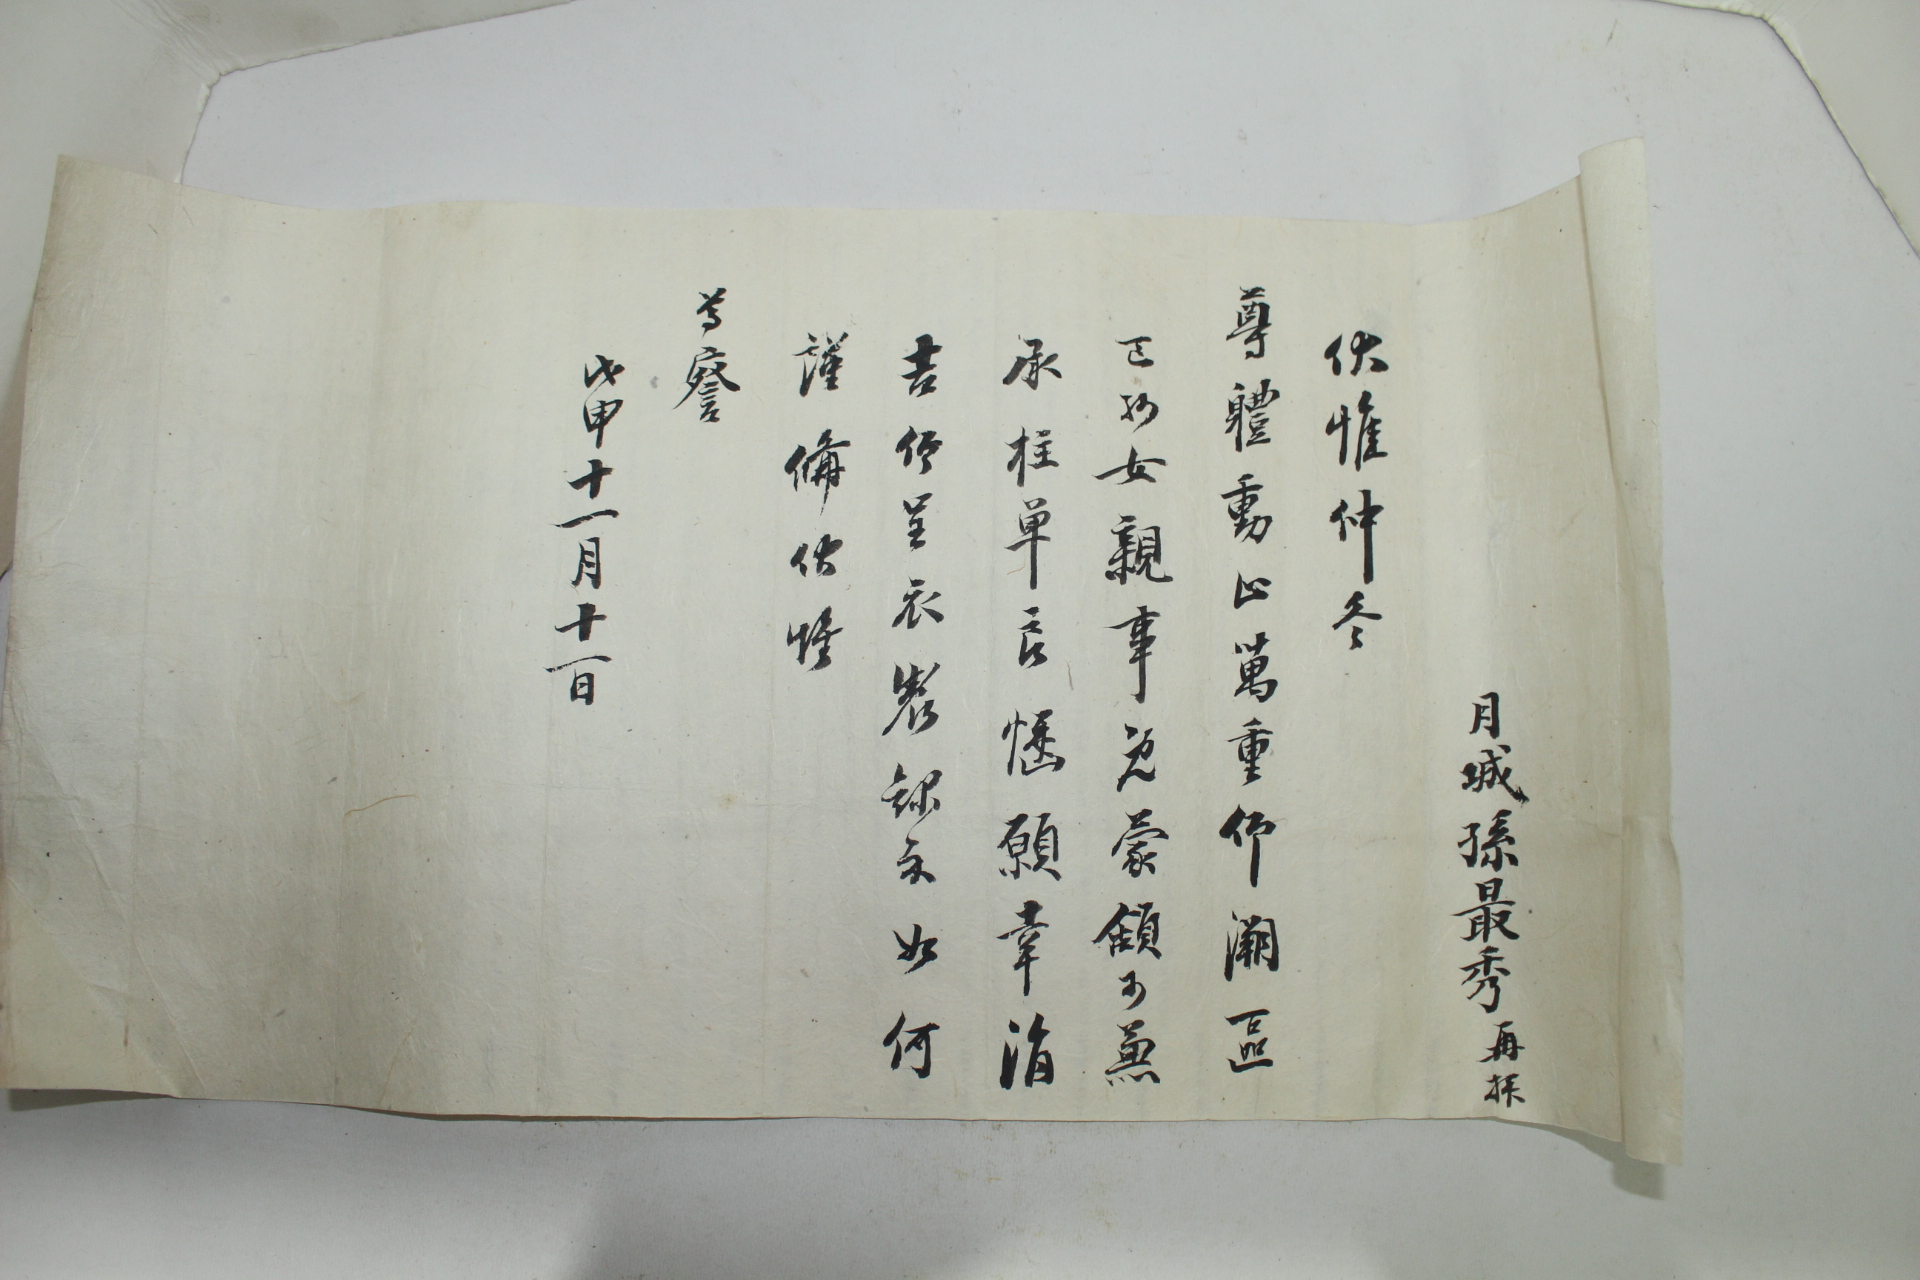 月城孫最秀再拜
伏惟仲冬
尊體動止萬重仰溯區
區孫女親事既蒙頷可兼
承柱單良愜願幸涓
吉仰呈衣製錄示如何
謹備伏惟
尊察
戊申十一月十一日